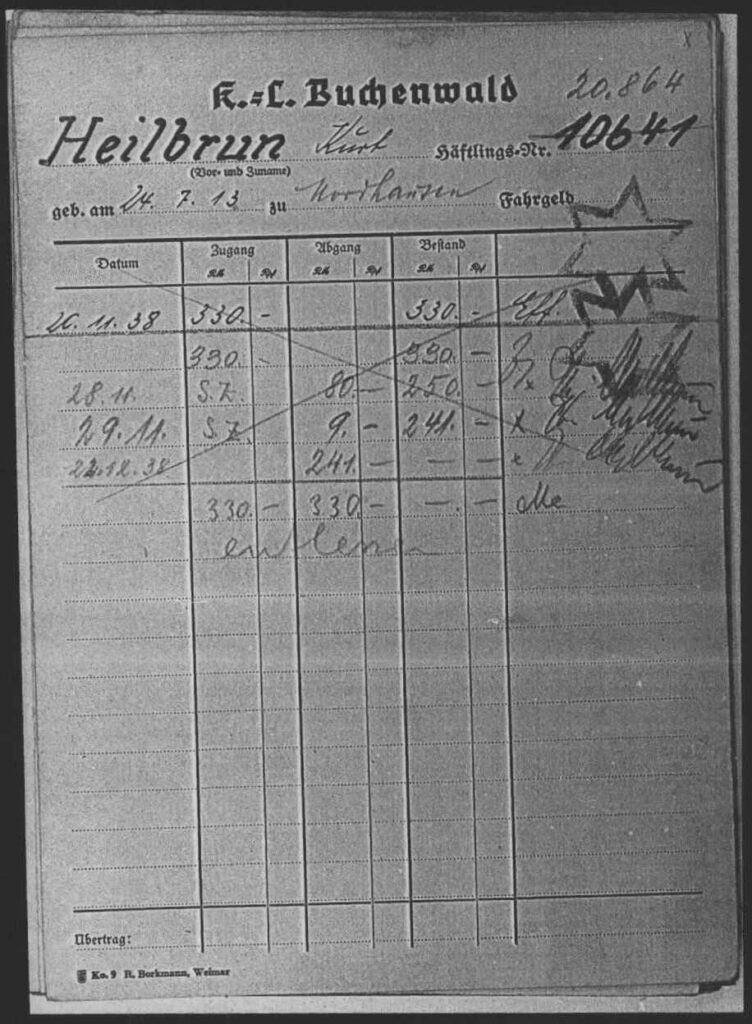 x
K.=L. Buchenwald 20.864
Heilbrun Kurt Häftlings=Nr. 10641
(Vor= und Zuname)
geb. am 24. 7. 13 zu Nordhausen Fahrgeld
Datum Zugang Abgang Bestand
RM Pf RM Pf RM Pf
330. - 330. - Eff.
330. - 330. -
28.11. S.Z. 80. - 250. - x
29.11. S.Z. 9. - 241. - x
22.12.38 241. - - - x
330. - 330. - - - Me
entlassen
Übertrag:
Ko. 9 R. Borkmann, Weimar